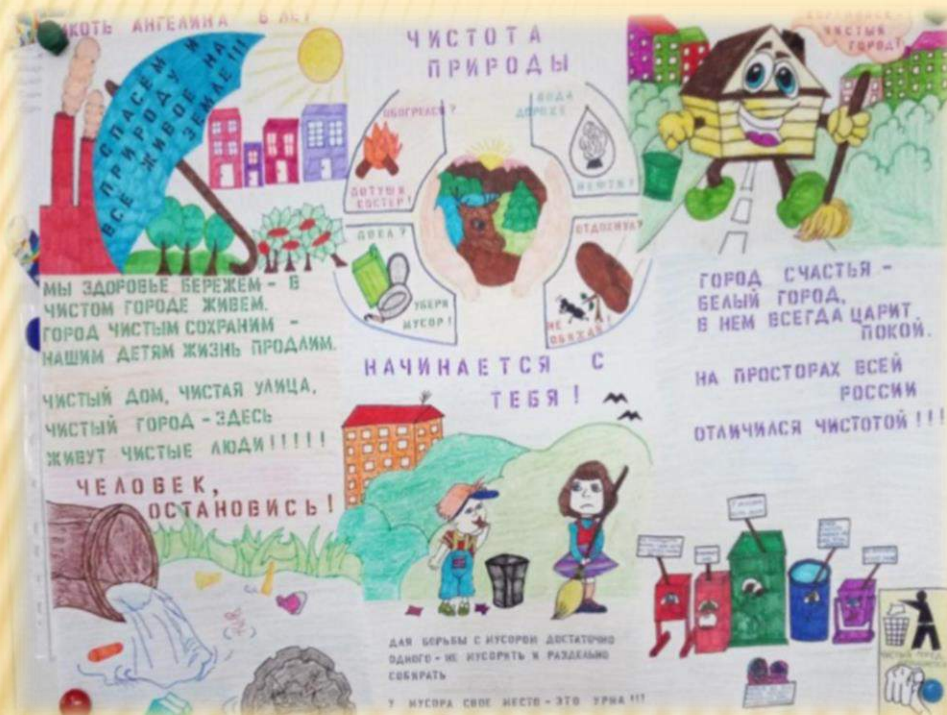 АНГЕЛИНА 6 ЛЕТ
СПАСЕМ И
ПРИРОДУ НА
ВСЕ ЖИВОЕ
ЗЕМЛЕ!!!
ЧИСТОТА
ПРИРОДЫ
ОБОГРЕЛСЯ?
ПОТУШИ
КОСТЕР!
ВОДА
ДОРОЖЕ
НЕФТИ!
ПОЕЛ?
УБЕРИ
МУСОР!
ОТДОХНУЛ?
НЕ
ОБИЖАЙ!
НАЧИНАЕТСЯ С
ТЕБЯ!
ЧИСТЫЙ
ГОРОД!
МЫ ЗДОРОВЬЕ БЕРЕЖЕМ - В
ЧИСТОМ ГОРОДЕ ЖИВЕМ.
ГОРОД ЧИСТЫМ СОХРАНИМ -
НАШИМ ДЕТЯМ ЖИЗНЬ ПРОДЛИМ.
ЧИСТЫЙ ДОМ, ЧИСТАЯ УЛИЦА,
ЧИСТЫЙ ГОРОД - ЗДЕСЬ
ЖИВУТ ЧИСТЫЕ ЛЮДИ!!!!!
ЧЕЛОВЕК,
ОСТАНОВИСЬ!
ГОРОД СЧАСТЬЯ -
БЕЛЫЙ ГОРОД,
В НЕМ ВСЕГДА ЦАРИТ
ПОКОЙ.
НА ПРОСТОРАХ ВСЕЙ
РОССИИ
ОТЛИЧИЛСЯ ЧИСТОТОЙ!!!
ДЛЯ БОРЬБЫ С МУСОРОМ ДОСТАТОЧНО
ОДНОГО - НЕ МУСОРИТЬ И РАЗДЕЛЬНО
СОБИРАТЬ
У МУСОРА СВОЕ МЕСТО - ЭТО УРНА!!!